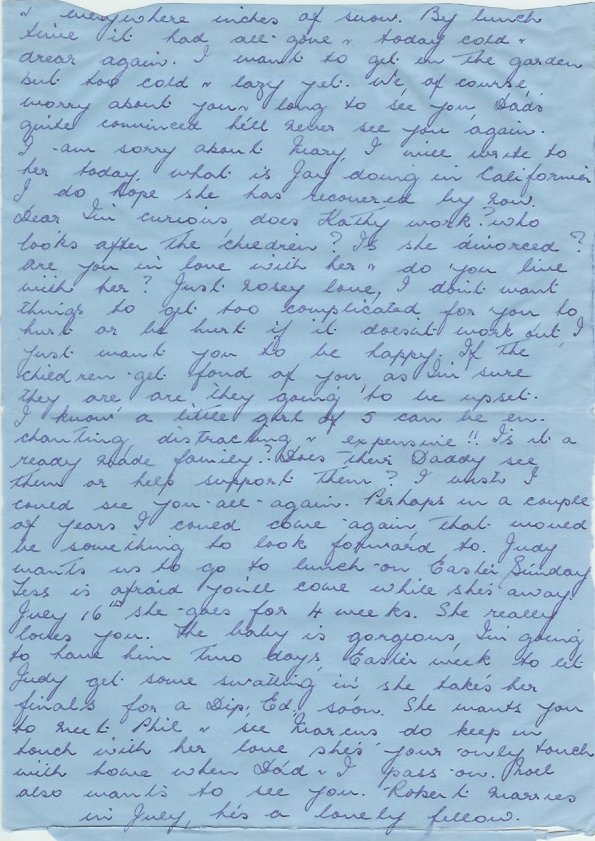 & everywhere inches of snow. By lunch
time it had all gone & today cold &
drear again. I want to get in the garden
but too cold & lazy yet. We, of course,
worry about you & long to see you Dads
quite convinced he'll never see you again.
I am sorry about Mary, I will write to
her today, what is Jay doing in Californier
I do hope she has recovered by now.
Dear I'm curious does Kathy work? who
looks after the children? Is she divorced?
are you in love with her & do you live
with her? Just nosey love, I don't want
things to get too complicated for you to
hurt or be hurt if it doesn't work out, I
just want you to be happy. If the
children get fond of you as I'm sure
they are are they going to be upset.
I know a little girl of 5 can be en-
chanting distracting & expensive!! Is it a
ready made family? Does their Daddy see
them or help support them? I wish I
could see you all again. Perhaps in a couple
of years I could come again that would
be something to look forward to. Judy
wants us to go to lunch on Easter Sunday
Tess is afraid you'll come while she's away
July 16th she goes for 4 weeks. She really
loves you. The baby is gorgious, I'm going
to have him two days Easter week to let
Judy get some swatting in she takes her
finals for a Dip. Ed. soon. She wants you
to meet Phil & see Marcus do keep in
touch with her love she's your only touch
with home when Dad & I pass on. Noel
also wants to see you. Robert marries
in July, he's a lovely fellow.